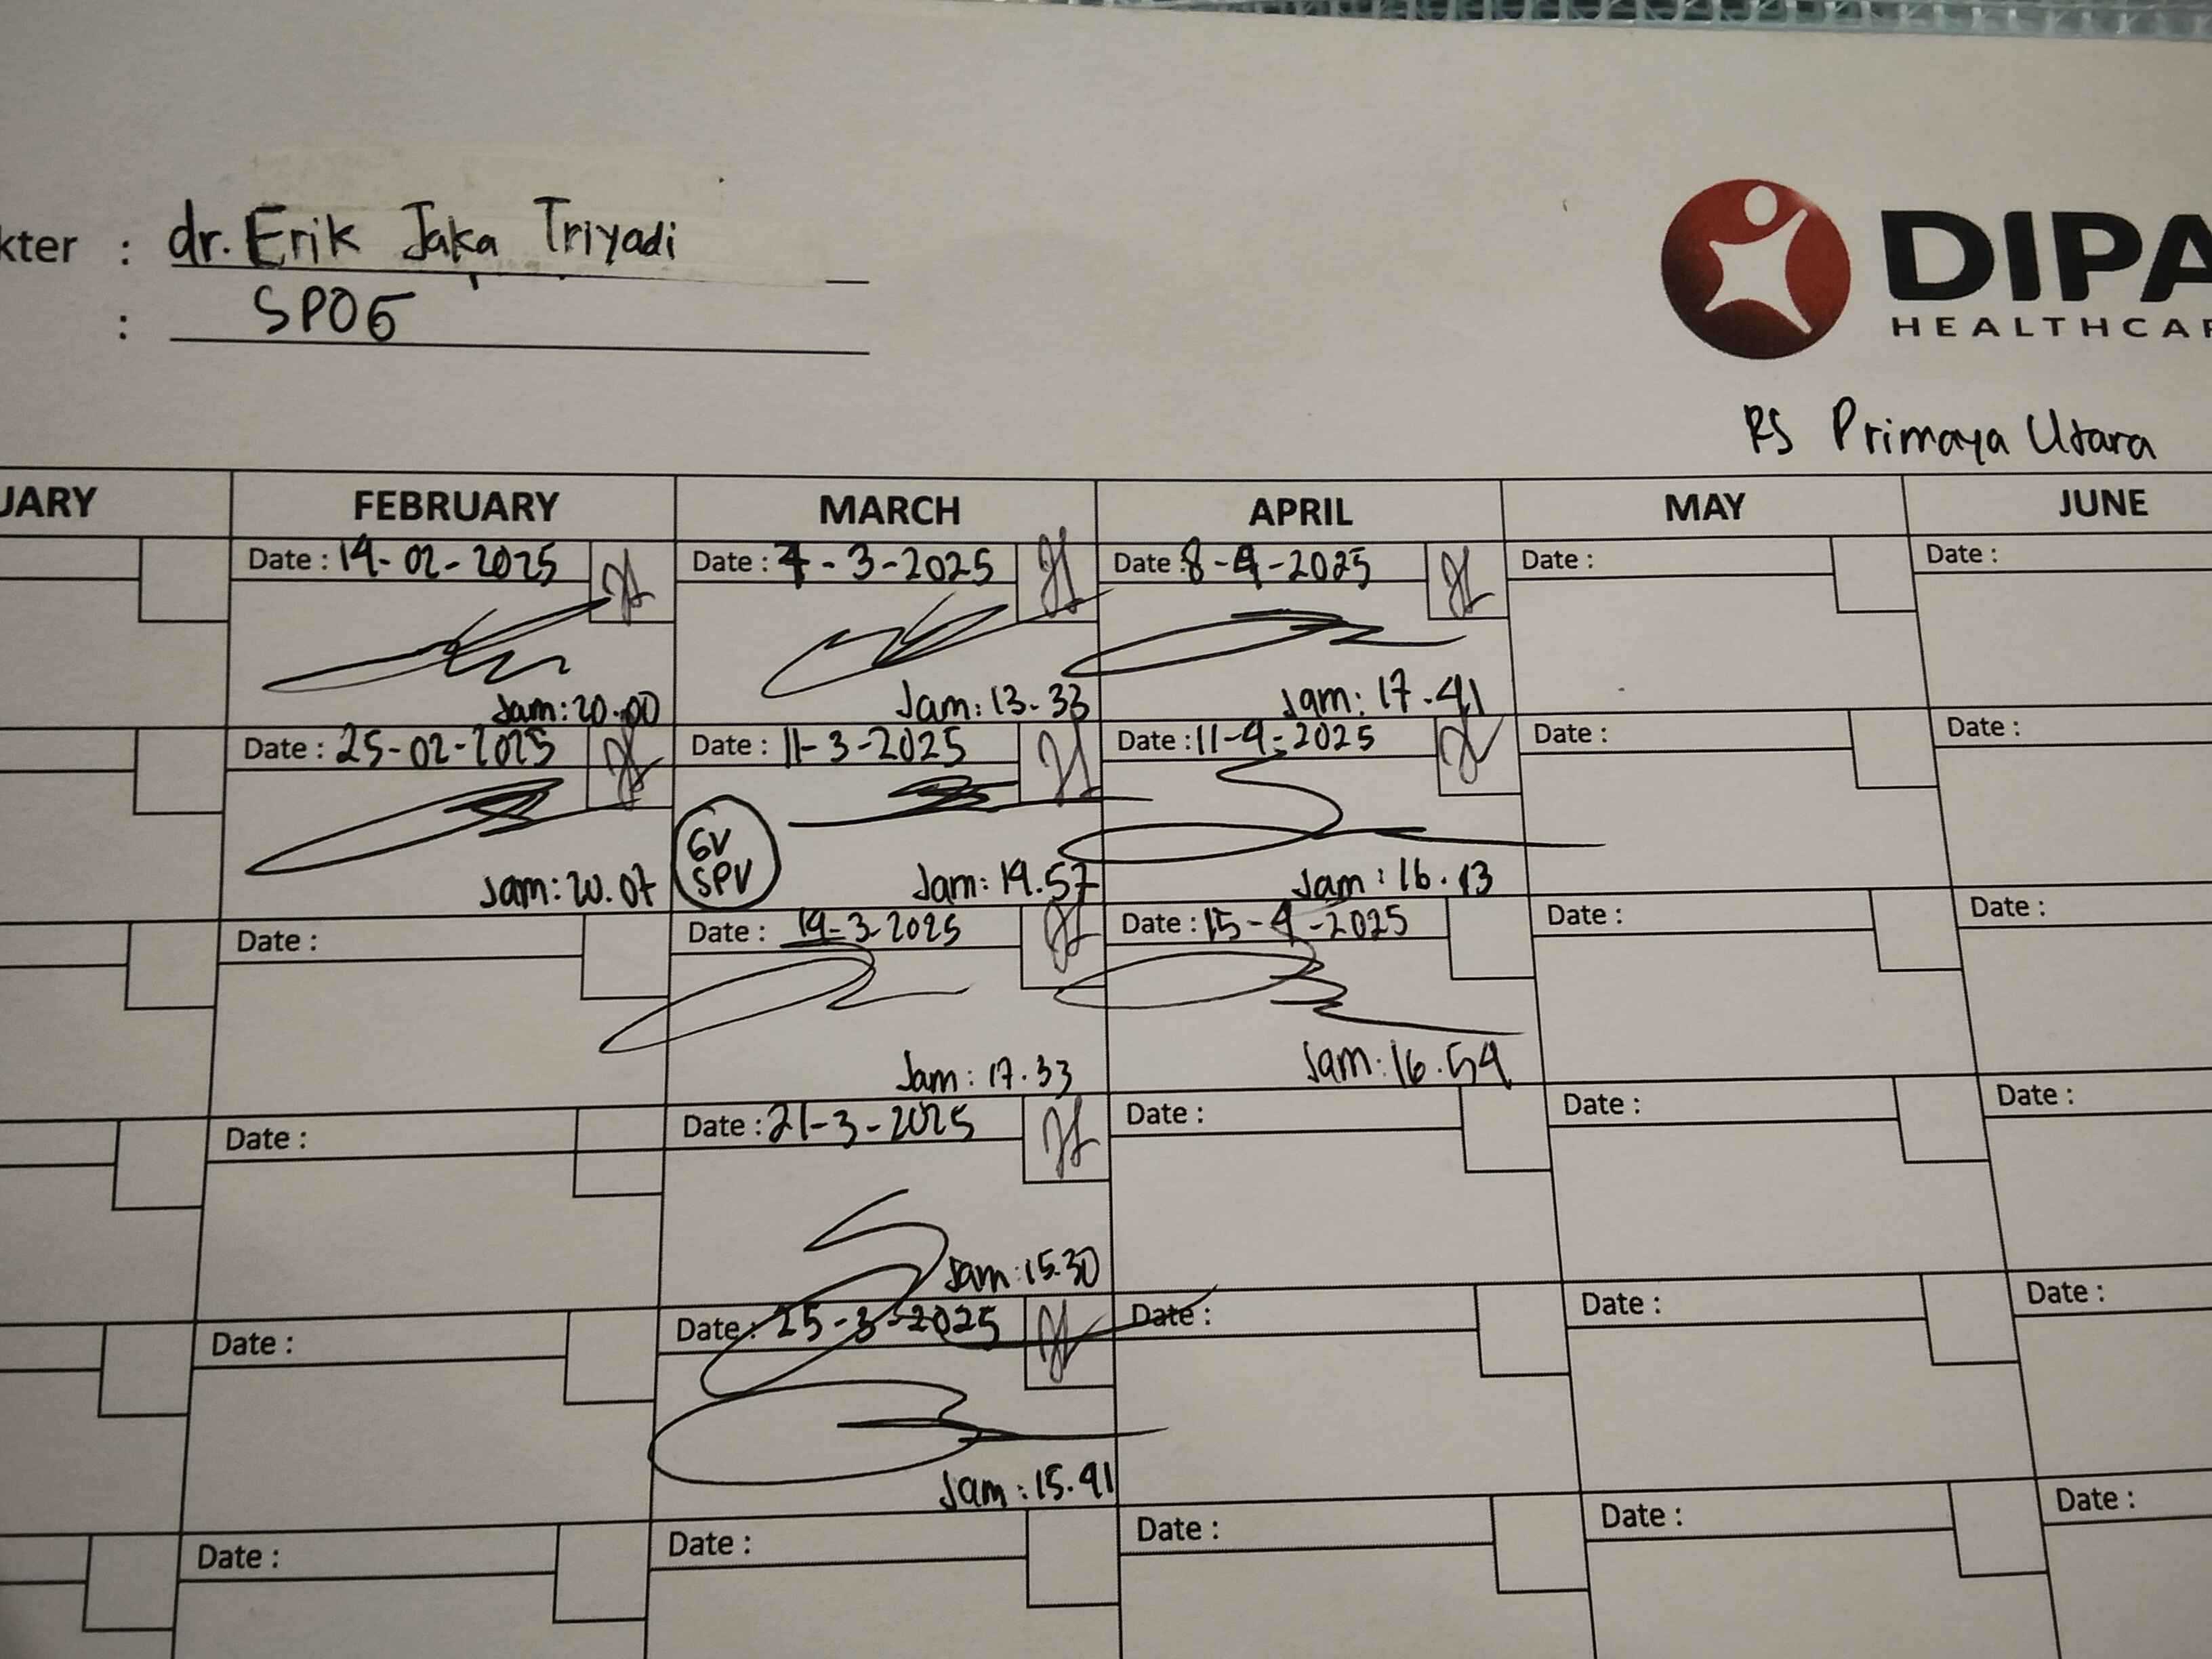 kter : dr. Erik Jaka Triyadi
: SPOG
DIPA
HEALTHCAR
RS Primaya Utara
UARY FEBRUARY MARCH APRIL MAY JUNE
Date : 14-02-2025 Date : 7-3-2025 Date : 8-4-2025 Date : Date :
Jam: 20.00 Jam: 13.33 Jam: 17.41
Date : 25-02-2025 Date : 11-3-2025 Date : 11-4-2025 Date : Date :
GV
SPV
Jam: 20.07 Jam: 14.57 Jam: 16.13
Date : Date : 14-3-2025 Date : 15-4-2025 Date : Date :
Jam: 17.33 Jam: 16.54
Date : Date : 21-3-2025 Date : Date : Date :
Jam: 15.30
Date : Date : 25-3-2025 Date : Date : Date :
Jam: 15.41
Date : Date : Date : Date : Date :